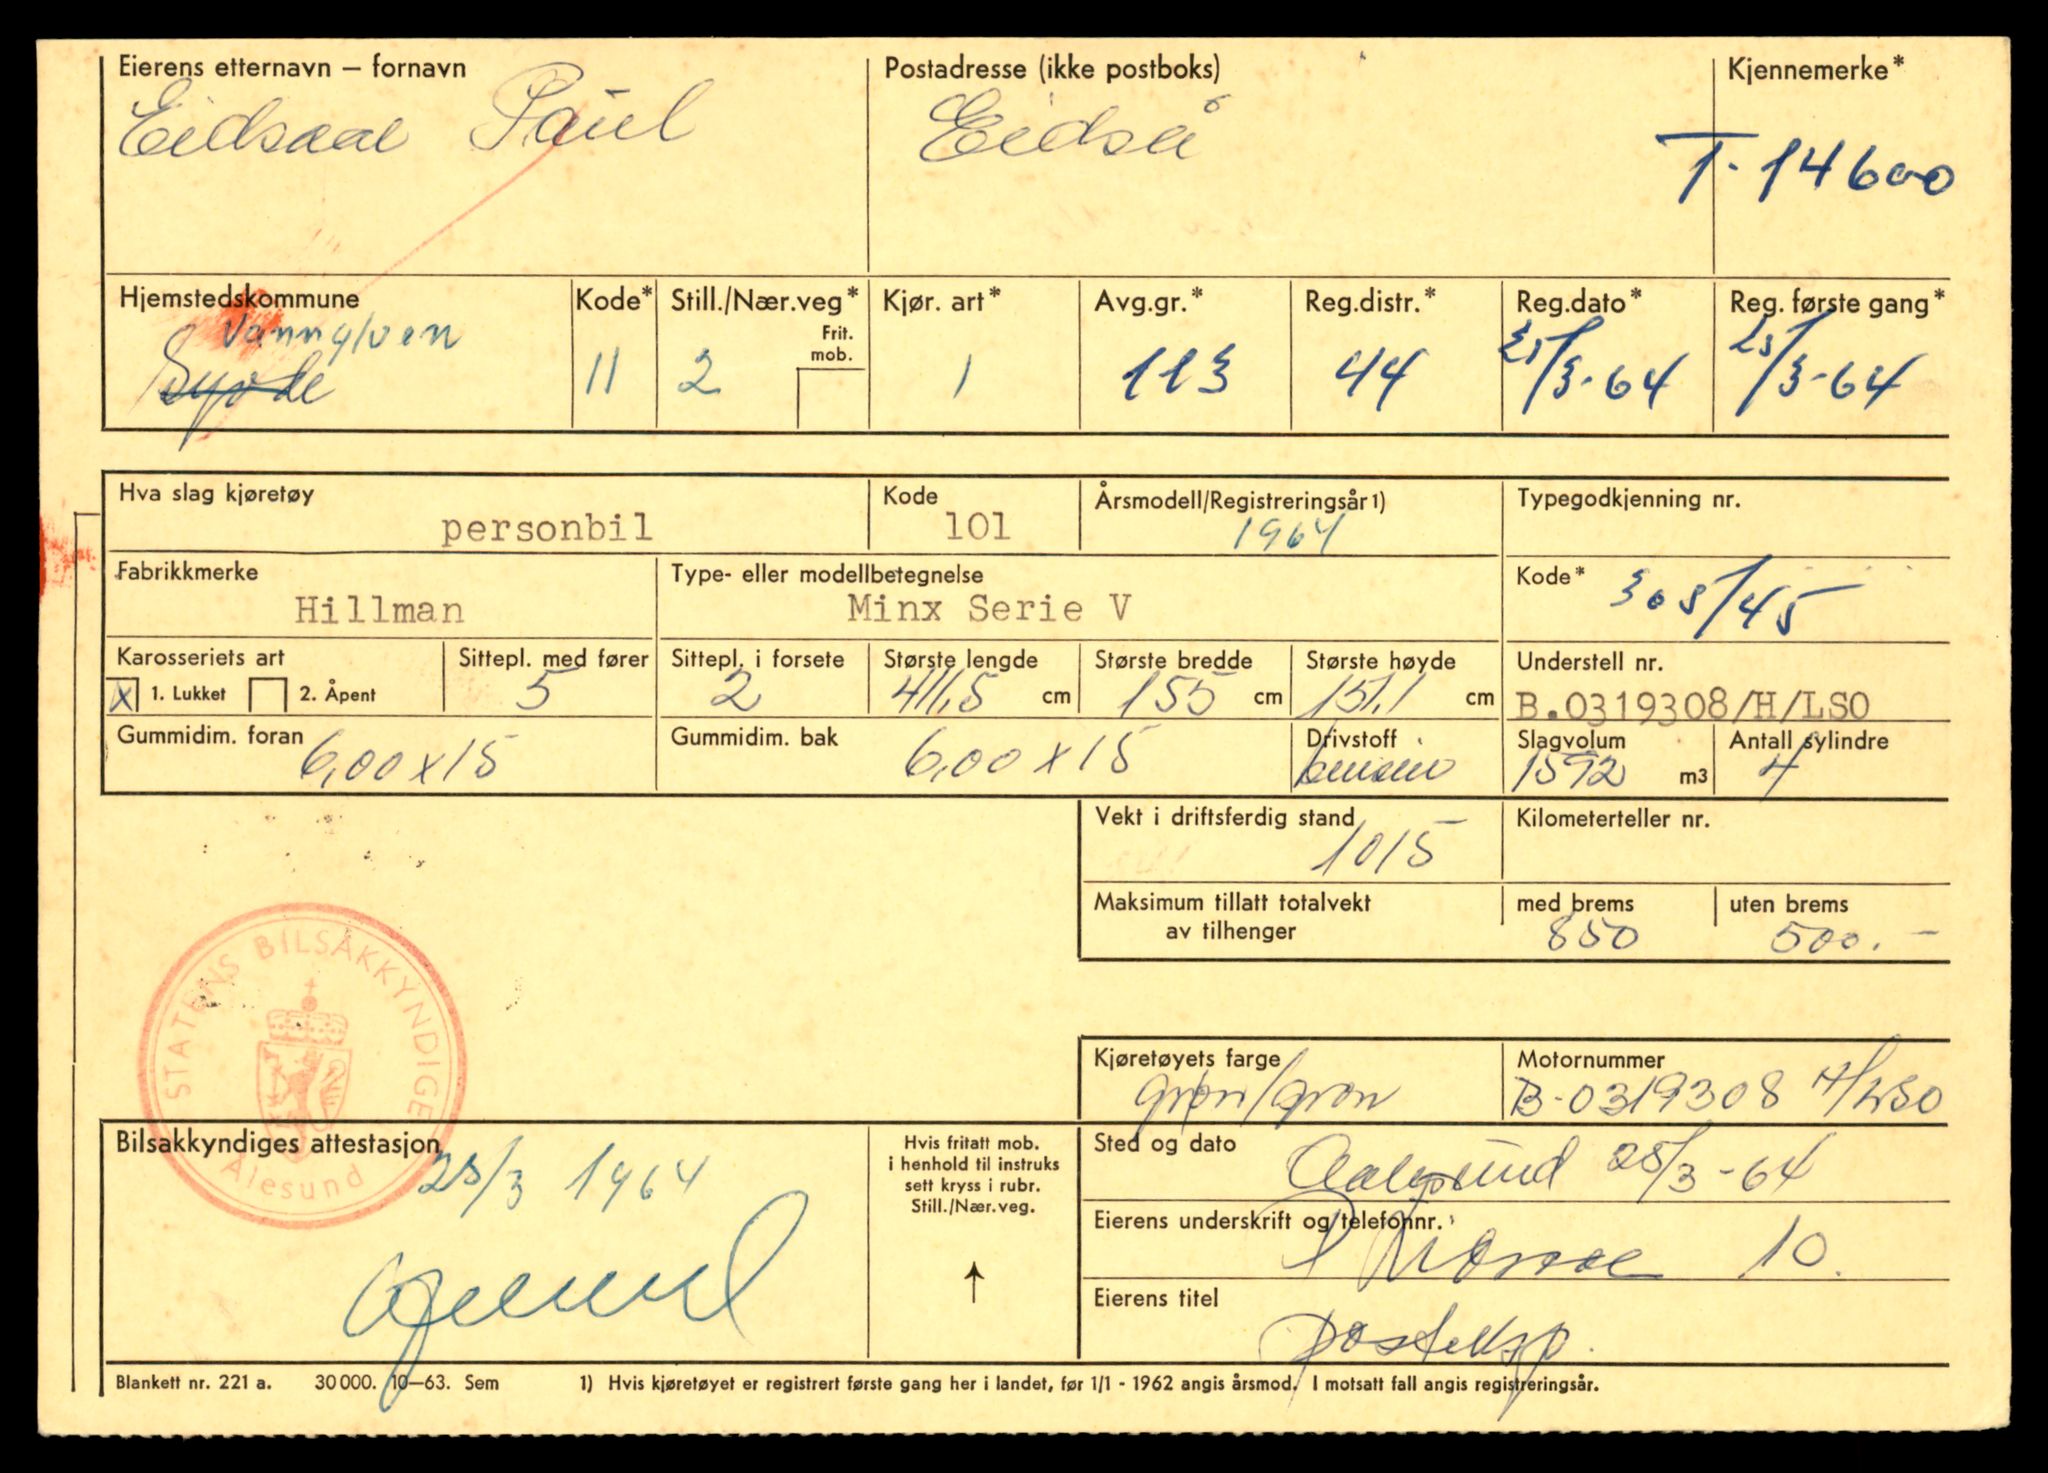 Eierens etternavn – fornavn Postadresse (ikke postboks) Kjennemerke*
Eidsaae Paul Eidså T-14600
Hjemstedskommune Kode* Still./Nær.veg* Kjør. art* Avg.gr.* Reg.distr.* Reg.dato* Reg. første gang*
Frit. mob.
Vannylven
Syvde 11 2 1 113 44 25/3-64 25/3-64
Hva slag kjøretøy Kode Årsmodell/Registreringsår 1) Typegodkjenning nr.
personbil 101 1964
Fabrikkmerke Type- eller modellbetegnelse Kode* 308/45
Hillman Minx Serie V
Karosseriets art Sittepl. med fører Sittepl. i forsete Største lengde Største bredde Største høyde Understell nr.
x 1. Lukket 2. Åpent 5 2 411,5 cm 155 cm 151,1 cm B.0319308/H/LSO
Gummidim. foran Gummidim. bak Drivstoff Slagvolum Antall sylindre
6,00 x 15 6,00 x 15 bensin 1592 m3 4
Vekt i driftsferdig stand Kilometerteller nr.
1015
Maksimum tillatt totalvekt med brems uten brems
av tilhenger 850 500.-
STATENS BILSAKKYNDIGE
Ålesund
Kjøretøyets farge Motornummer
grøn/grøn B-0319308 H/LSO
Bilsakkyndiges attestasjon Hvis fritatt mob. i henhold til instruks sett kryss i rubr. Still./Nær.veg. Sted og dato
25/3 1964 Aalesund 25/3-64
Eierens underskrift og telefonnr.
10.
Eierens titel
posteksp.
Blankett nr. 221 a. 30 000. 10–63. Sem 1) Hvis kjøretøyet er registrert første gang her i landet, før 1/1 - 1962 angis årsmod. I motsatt fall angis registreringsår.